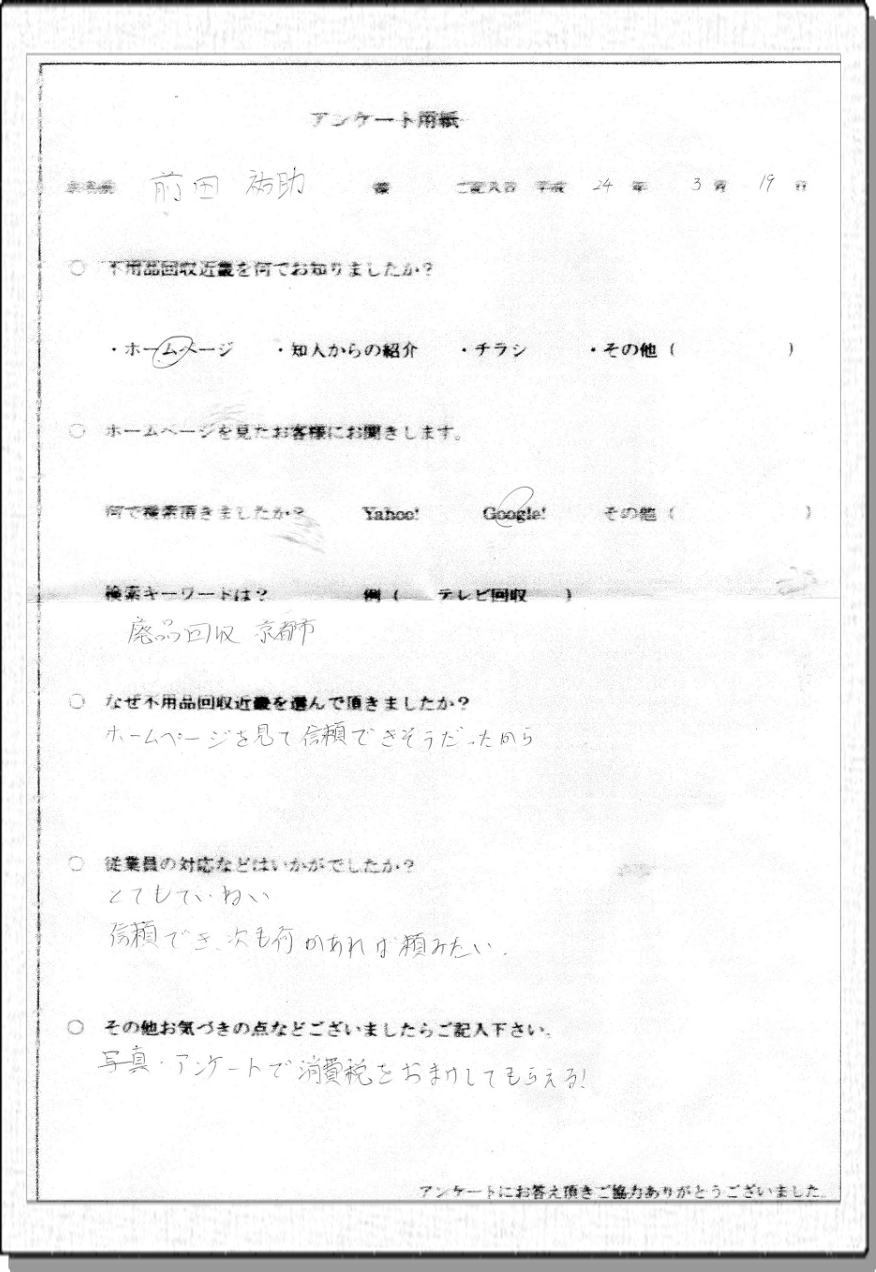 アンケート用紙
お名前 前田 祐助 様 ご記入日 平成 24 年 3 月 19 日
○ 不用品回収近畿を何でお知りましたか?
・ホームページ ・知人からの紹介 ・チラシ ・その他( )
○ ホームページを見たお客様にお聞きします。
何で検索頂きましたか? Yahoo! Google! その他( )
検索キーワードは? 例( テレビ回収 )
廃品回収 京都市
○ なぜ不用品回収近畿を選んで頂きましたか?
ホームページを見て信頼できそうだったから
○ 従業員の対応などはいかがでしたか?
とてもていねい
信頼でき、次も何かあれば頼みたい.
○ その他お気づきの点などございましたらご記入下さい。
写真・アンケートで消費税をおまけしてもらえる!
アンケートにお答え頂きご協力ありがとうございました。